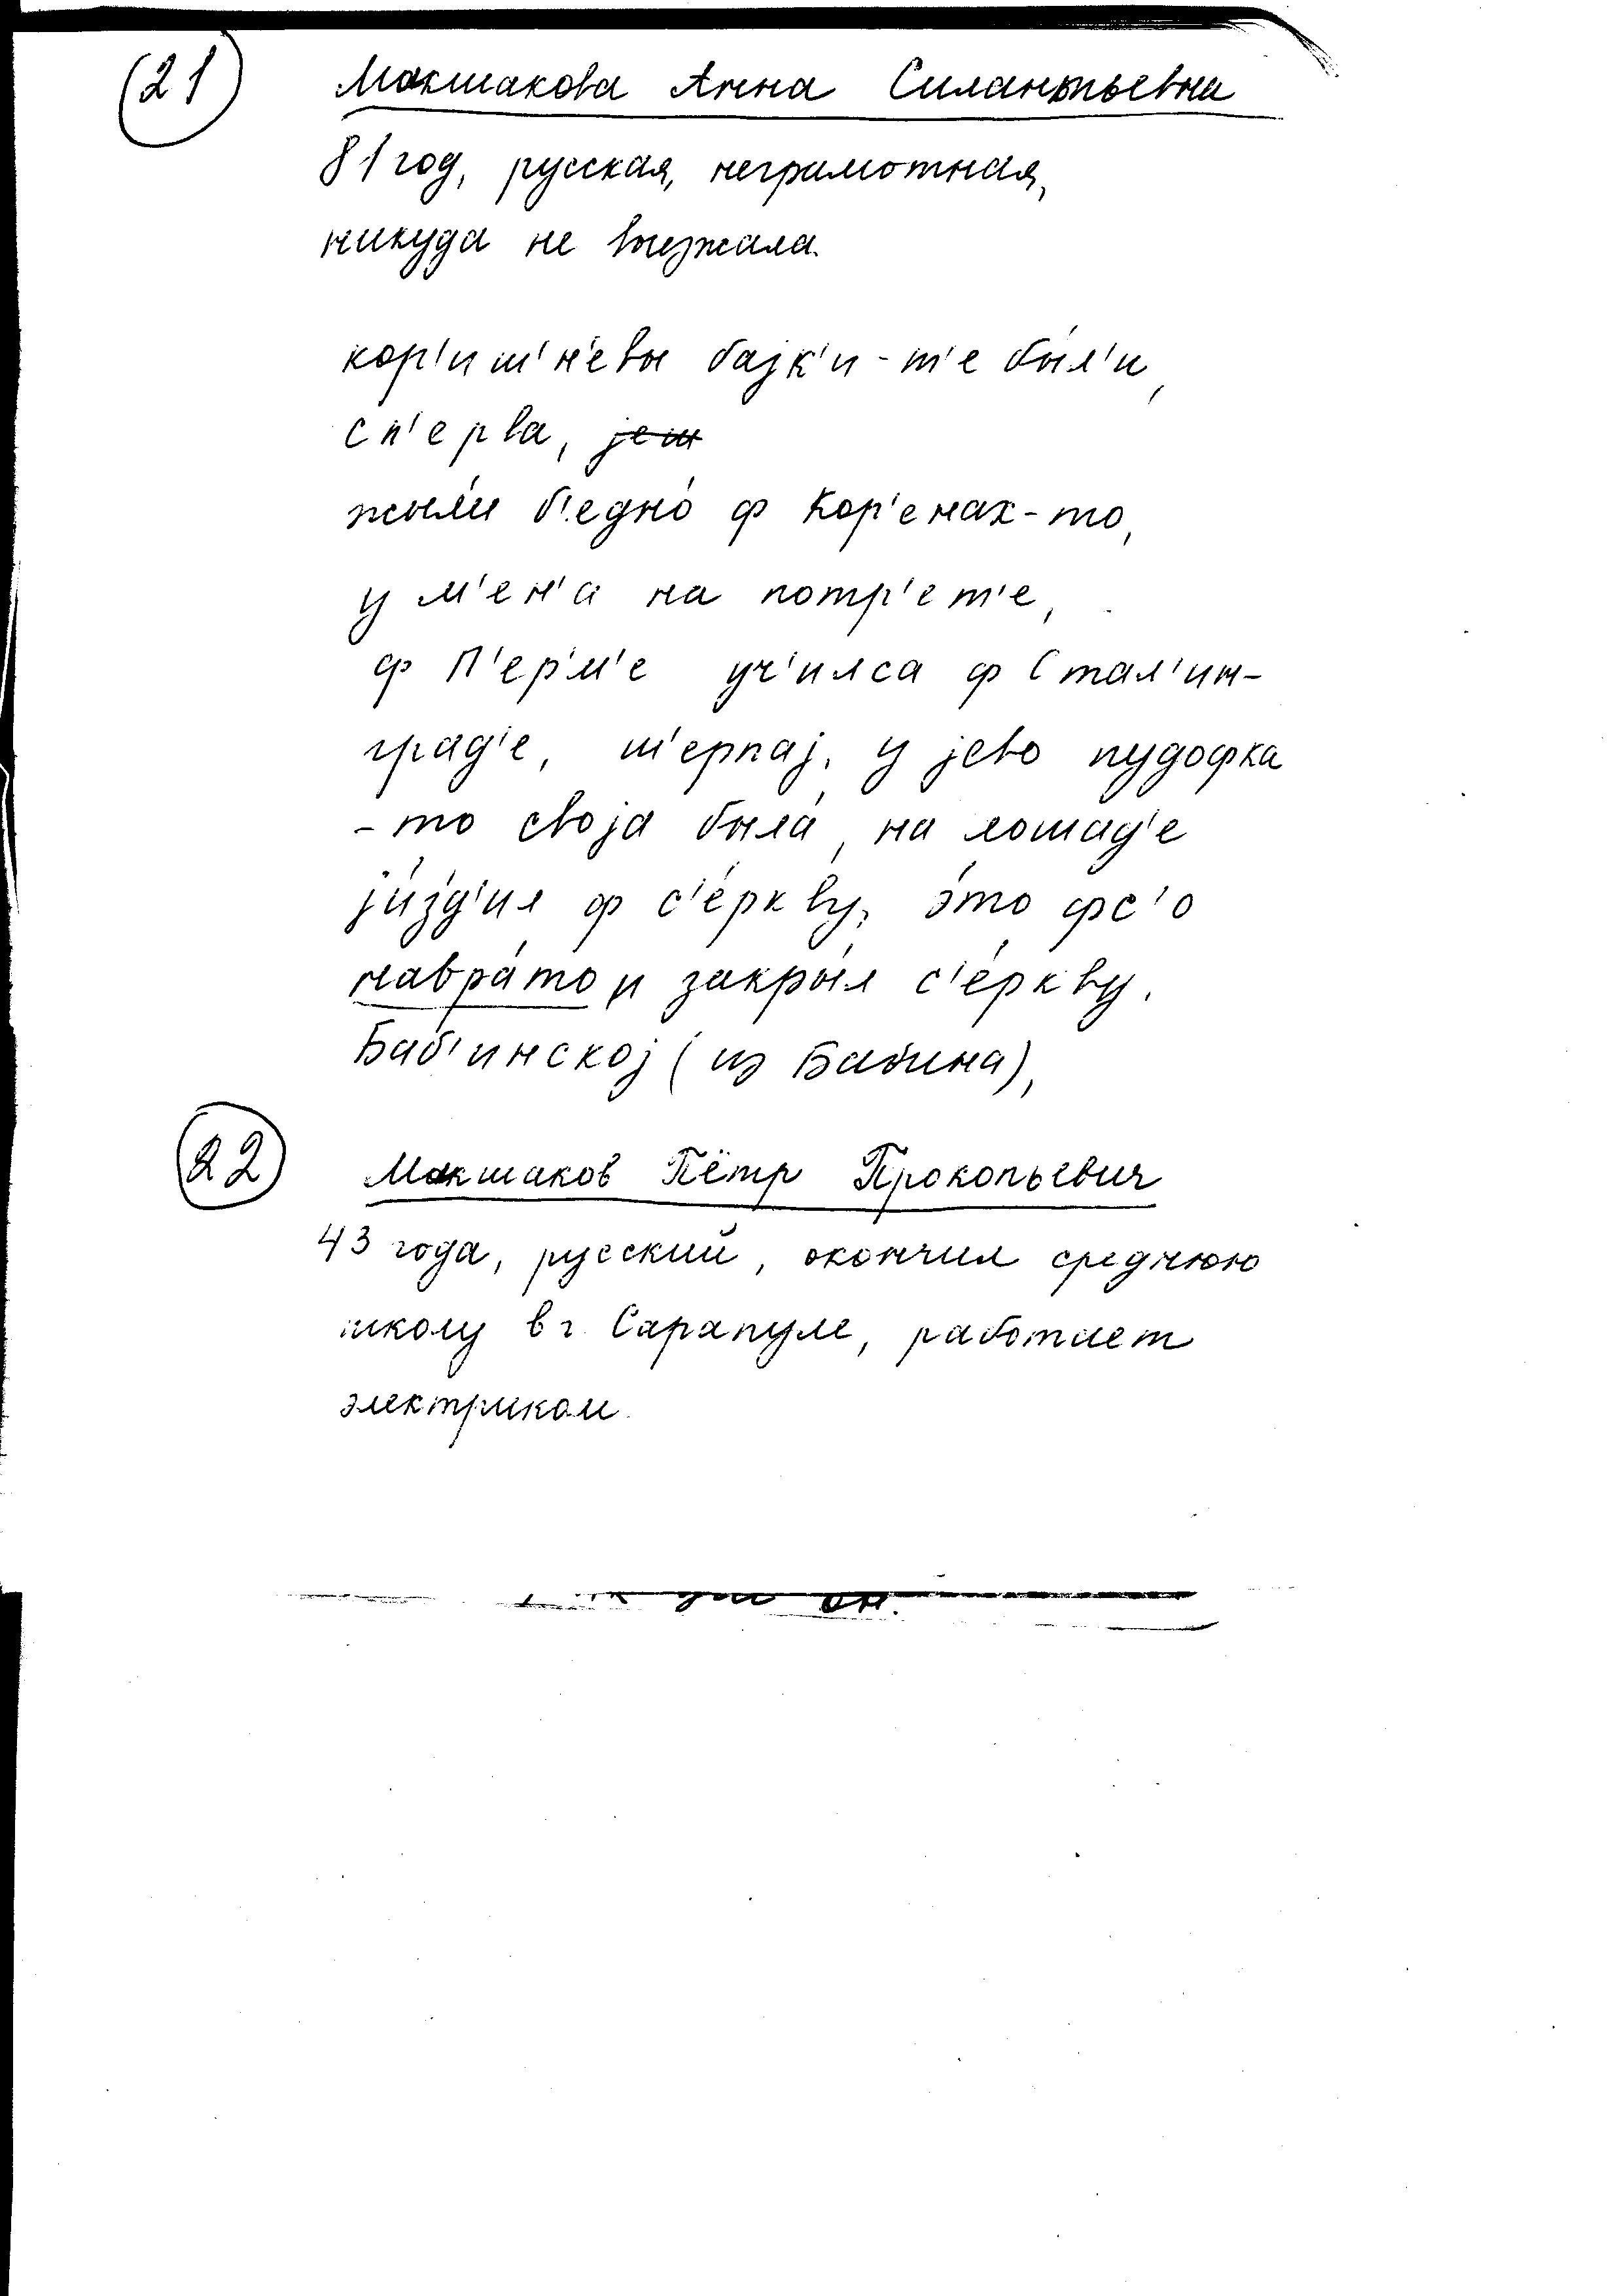 (21) Макшакова Анна Силантьевна
81 год, русская, неграмотная,
никуда не выезжала.
кор'иш'н'евы бајк'и-т'е был'и,
сп'ерва,
жыл'и б'едно ф Кор'енах-то,
у м'ен'а на потр'ет'е,
ф П'ер'м'е уч'илса ф Стал'ин-
град'е, ш'ерпај, у јево пудофка
-то своја была, на лошад'е
јиз'д'ил ф с'еркву, это фс'о
наврато и закрыл с'еркву.
Баб'инској (из Бабина),
(22) Макшаков Пётр Прокопьевич
43 года, русский, окончил среднюю
школу в г. Сарапуле, работает
электриком.